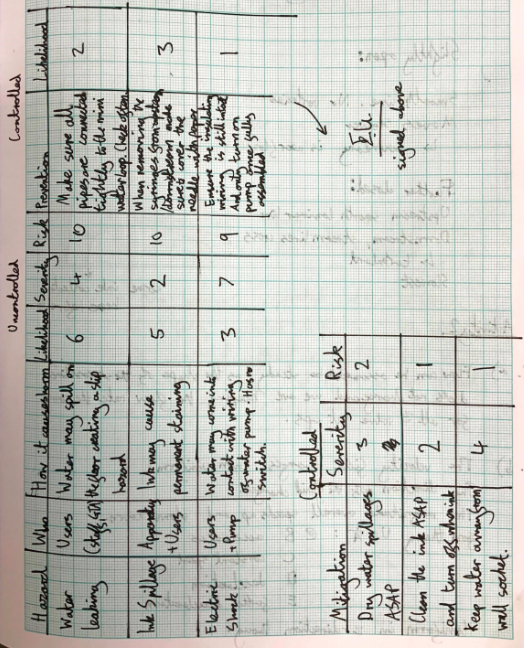 Uncontrolled
Controlled
Hazard | Who | How it causes harm | Likelihood | Severity | Risk | Prevention | Likelihood
Water leaking | Users | Water may spill on the floor creating a slip hazard | 6 | 4 | 10 | Make sure all pipes are connected tightly to the mini water loop. Check often | 2
Ink Spillage | Apparatus + Users | Ink may cause permanent staining | 5 | 2 | 10 | When removing the syringes from the sure to cover the needle with paper | 3
Electric Shock | Users + Pump | Water may come into contact with wiring of water pump. Has no switch. | 3 | 7 | 9 | Ensure the insulating wiring is still intact And only turn on pump once fully assembled | 1
Controlled
Mitigation | Severity | Risk
Dry water spillages ASAP | 3 | 2
Clean the ink ASAP and turn off when ink | 2 | 1
Keep water away from wall socket. | 4 | 1
signed above